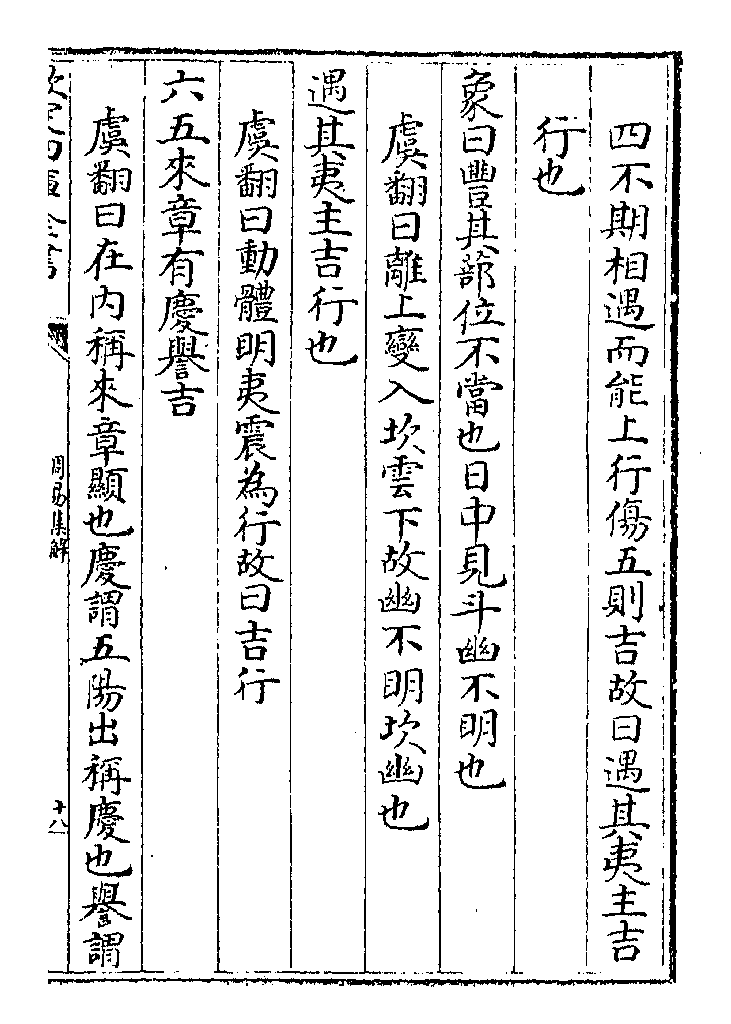 四不期相遇而能上行傷五則吉故曰遇其夷主吉
行也
象曰豐其蔀位不當也日中見斗幽不明也
虞翻曰離上變入坎雲下故幽不明坎幽也
遇其夷主吉行也
虞翻曰動體明夷震為行故曰吉行
六五來章有慶譽吉
虞翻曰在內稱來章顯也慶謂五陽出稱慶也譽謂
欽定四庫全書
周易集解
十八